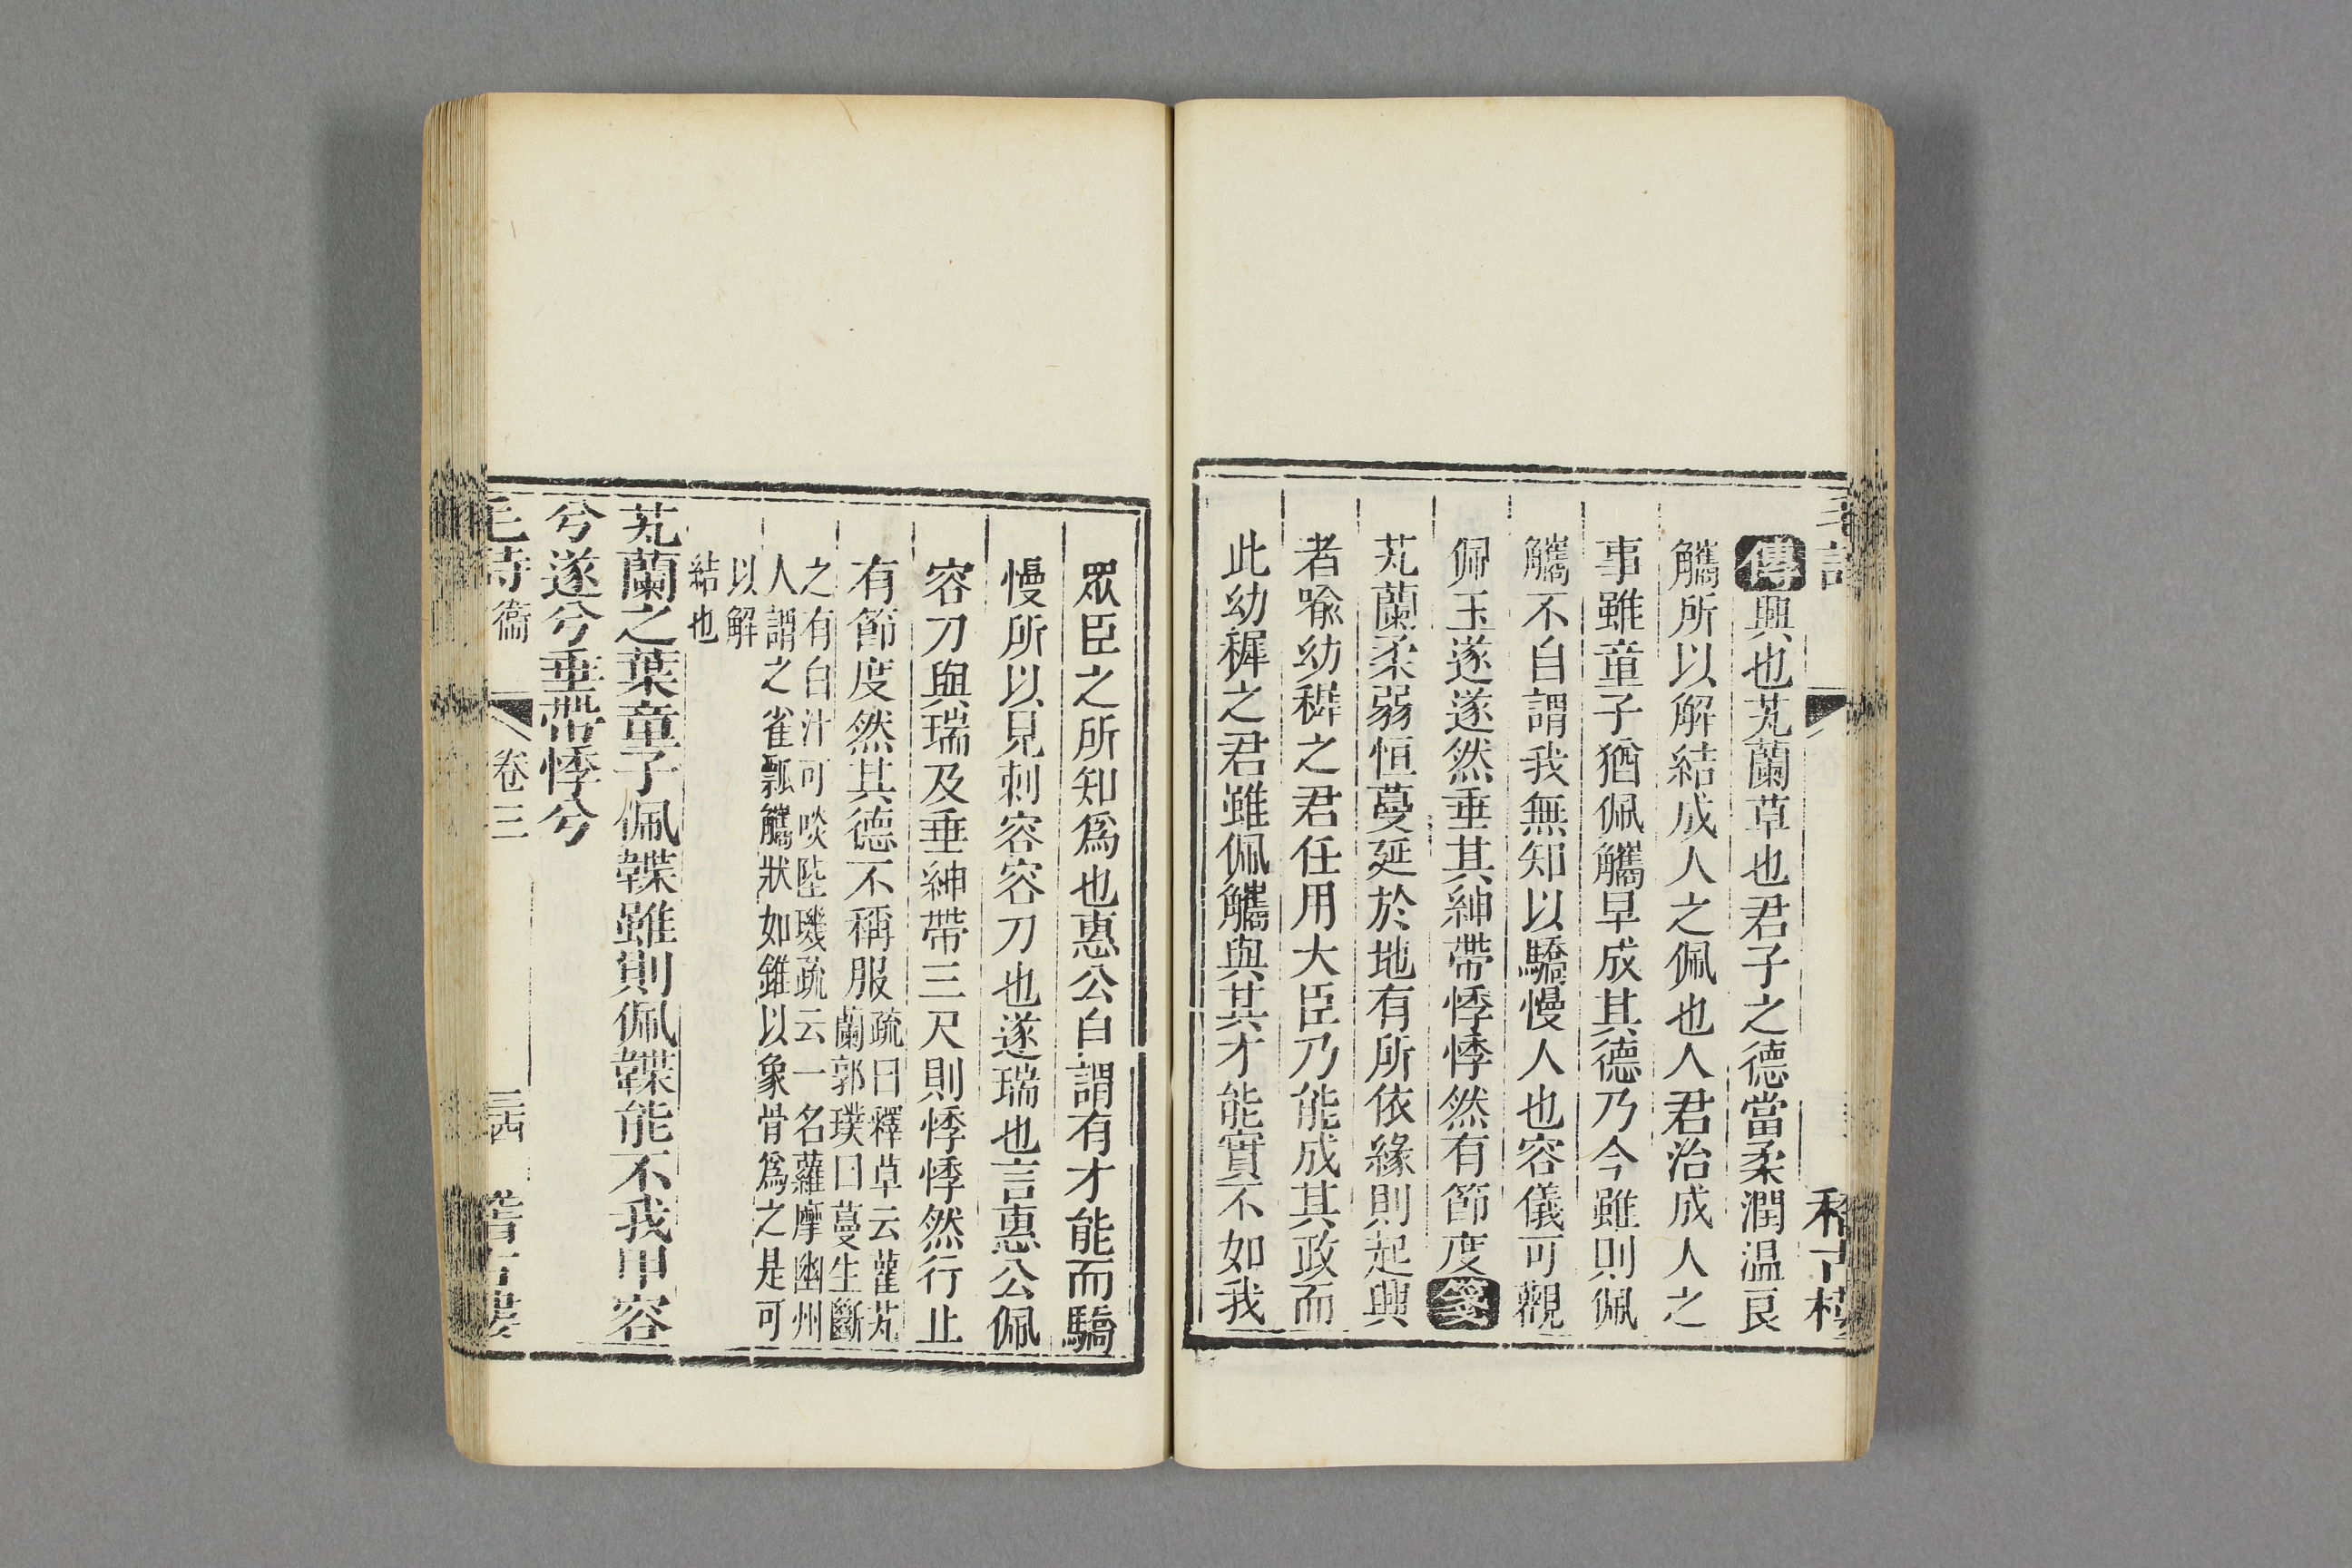 傳興也芄蘭草也君子之德當柔潤温良
觿所以解結成人之佩也人君治成人之
事雖童子猶佩觿早成其德乃今雖則佩
觿不自謂我無知以驕慢人也容儀可觀
佩玉遂遂然垂其紳帶悸悸然有節度箋
芄蘭柔弱恒蔓延於地有所依緣則起興
者喻幼穉之君任用大臣乃能成其政而
此幼穉之君雖佩觿與其才能實不如我
眾臣之所知爲也惠公自謂有才能而驕
慢所以見刺容容刀也遂瑞也言惠公佩
容刀與瑞及垂紳帶三尺則悸悸然行止
有節度然其德不稱服
疏曰釋草云雚芄
蘭郭璞曰蔓生斷
之有白汁可啖陸璣疏云一名蘿摩幽州
人謂之雀瓢觿狀如錐以象骨爲之是可
以解
結也
芄蘭之葉童子佩韘雖則佩韘能不我甲容
兮遂兮垂帶悸兮
毛詩 衞 卷三